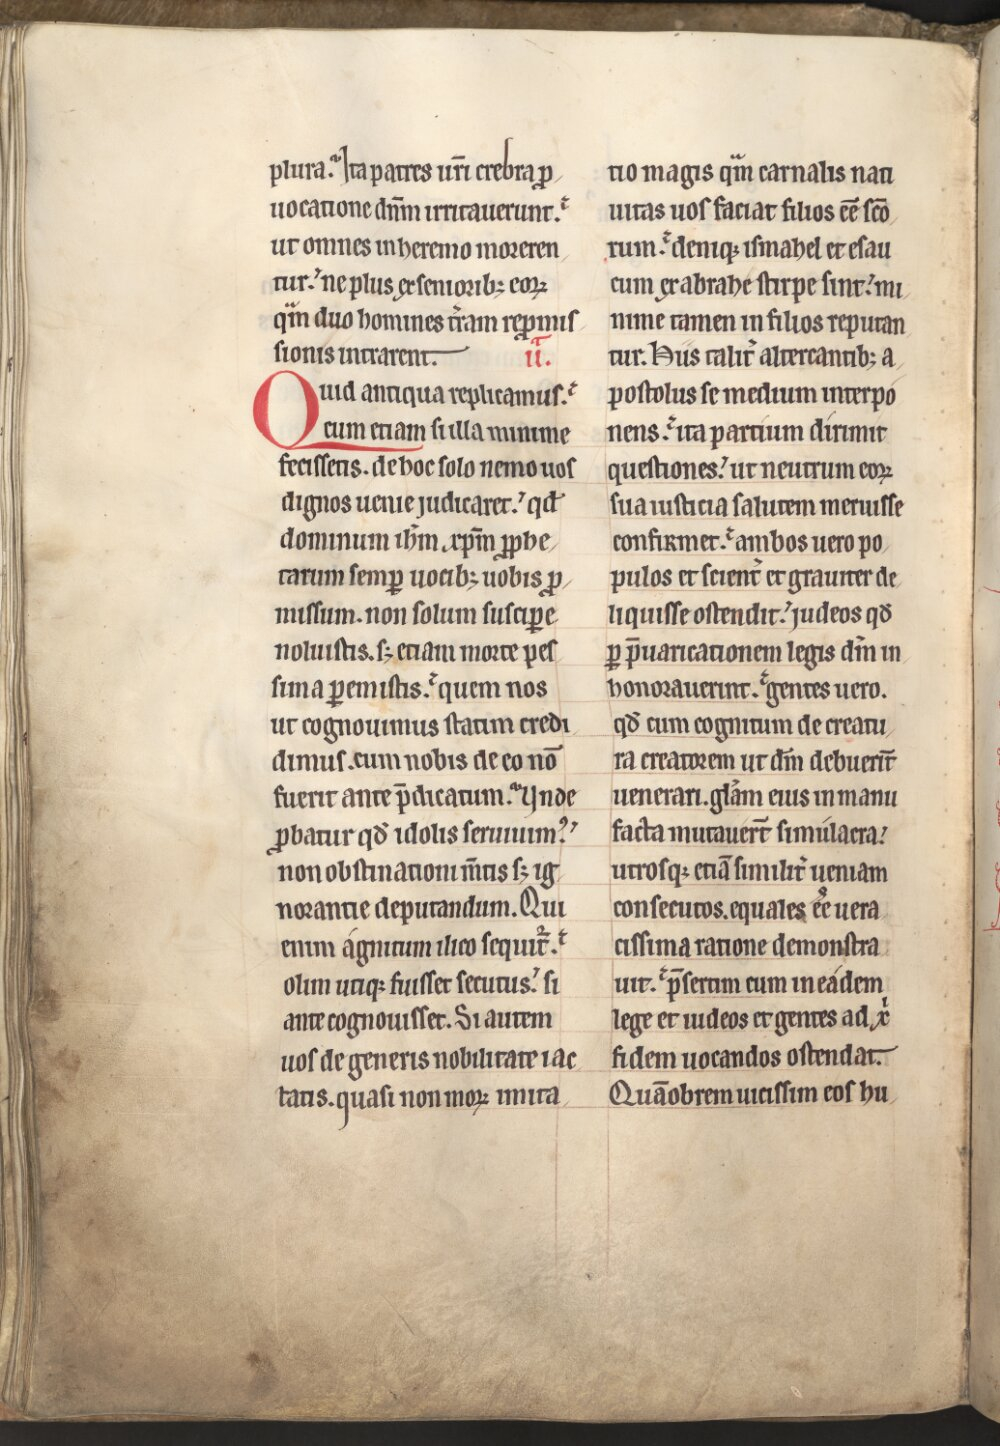 plura. Ita patres ur̄i crebra ꝓ
uocatione dn̄m irritauerunt.
ut omnes in heremo moreren
tur. ne plus ex seniorib; eoꝝ
qͣm duo homines t̄ram repromis
sionis intrarent. ii.
Quid antiqua replicamus.
cum etiam si illa minime
fecissetis. de hoc solo nemo uos
dignos uenie judicaret. qd̄
dominum ih̄m xp̄m ꝓphe
tarum semꝑ uocib; uobis ꝓ
missum. non solum suscipe
noluistis. s; etiam morte pes
sima ꝑemistis. quem nos
ut cognouimus statim credi
dimus. cum nobis de eo no᷑
fuerit ante p̄dicatum. Ynde
ꝓbatur qd̄ idolis seruiuim᷒
non obstinationi m̄tis s; ig
norantie deputandum. Qui
enim agnitum ilico sequit᷑.
olim utiq; fuisset secutus. si
ante cognouisset. Si autem
uos de generis nobilitate iac
tatis. quasi non moꝝ imita
tio magis qͣm carnalis nati
uitas uos faciat filios ēē sc̄o
rum. deniq; ismahel et esau
cum ex abrahe stirpe sint. mi
nime tamen in filios reputan
tur. Hiis talit᷑ altercantib; a
postolus se medium interpo
nens. ita partium dirimit
questiones. ut neutrum eoꝝ
sua iusticia salutem meruisse
confirmet. ambos uero po
pulos et scient᷑ et grauiter de
liquisse ostendit. judeos qd̄
ꝑ p̄uaricationem legis dm̄ in
honorauerint. gentes uero.
qd̄ cum cognitum de creatu
ra creatorem ut dm̄ debuerīt
uenerari. gl̄am eius in manu
facta mutauer̄t simulacra.
utrosq; etiā similit᷑ ueniam
consecutos. equales ēē uera
cissima ratione demonstra
uit. p̄sertim cum in eadem
lege et iudeos et gentes ad x̄
fidem uocandos ostendat.
Quāobrem uicissim eos hu